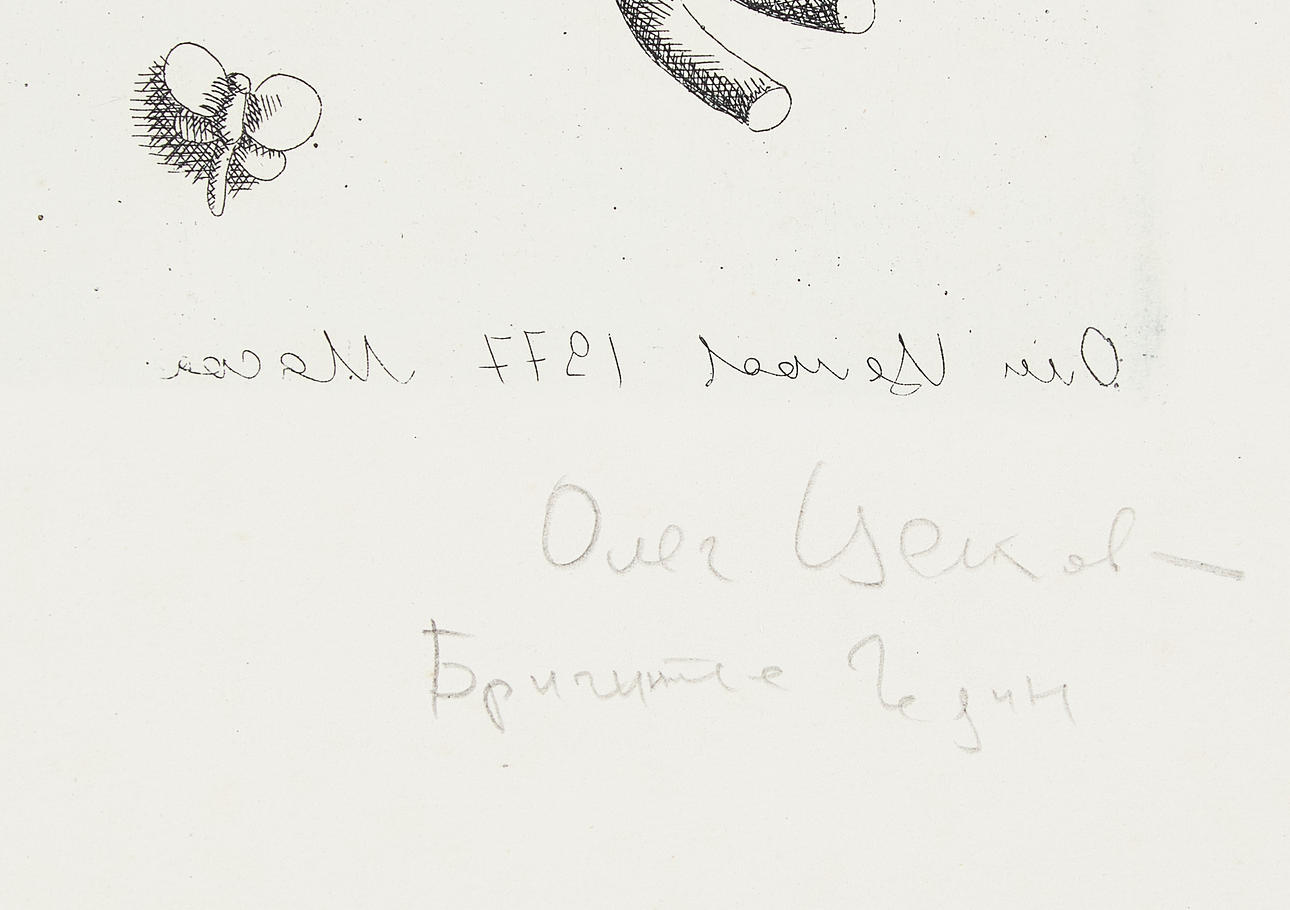 Олег Целков 1977 Масса
Олег Целков
Бригитте Гедин